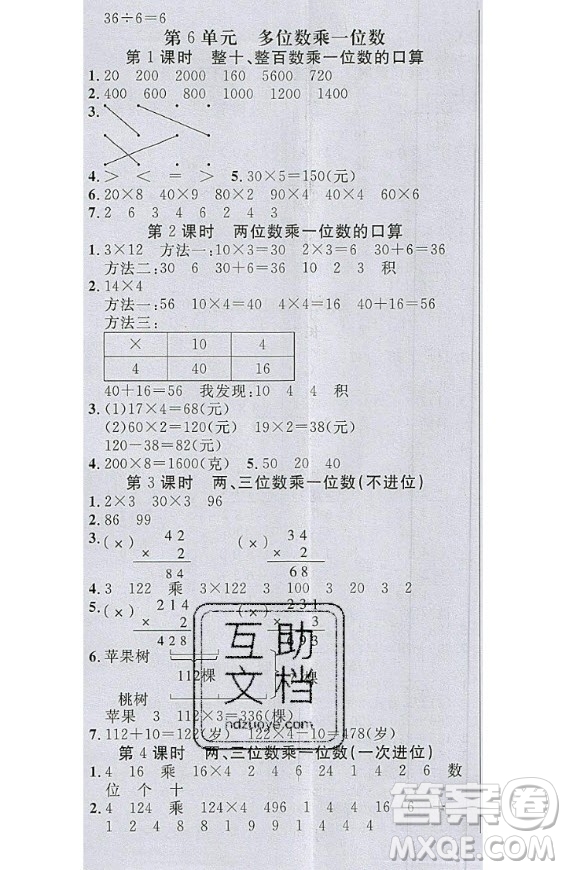 36÷6=6
第6单元 多位数乘一位数
第1课时 整十、整百数乘一位数的口算
1. 20 200 2000 160 5600 720
2. 400 600 800 1200 1400
3.
4. > < = > 5. 30×5=150(元)
6. 20×8 40×9 50×4 90×2 40×4 60×6
7. 2 6 3 4 6 2 2 4 3
第2课时 两位数乘一位数的口算
1. 3×12 方法一:10×3=30 2×3=6 30+6=36
方法二:30 6 30+6=36 3 2 积
2. 14×4
方法一:56 10×4=40 4×4=16 40+16=56
方法三:
× 10 4
4 40 16
40+16=56 我发现:10 4 4 积
3. (1)17×4=68(元)
(2)60×2=120(元) 19×2=38(元)
120-38=82(元)
4. 200×8=1600(克) 5. 50 20 40
第3课时 两、三位数乘一位数(不进位)
1. 2×3 30×3 96
2. 86 99
3. (×) 42 (×) 34
× 2 × 2
84 68
4. 3 122 乘 3×122 3 100 3 20 3 2
5. (×) 214 (×) 231
× 2
428 693
6. 苹果树
112棵
桃树
苹果 3 112×3=336(棵)
7. 112+10=122(岁) 122×4-10=478(岁)
第4课时 两、三位数乘一位数(一次进位)
1. 4 16 乘 16×4 2 4 24 1 4 2 6 数
位 个 十
2. 4 124 乘 124×4 496 1 4 4 16 6
1 2 4 4 8 8 1 9 9 1 4 4
互助
文档
hdzuoye.com
答案圈
MXQE.COM